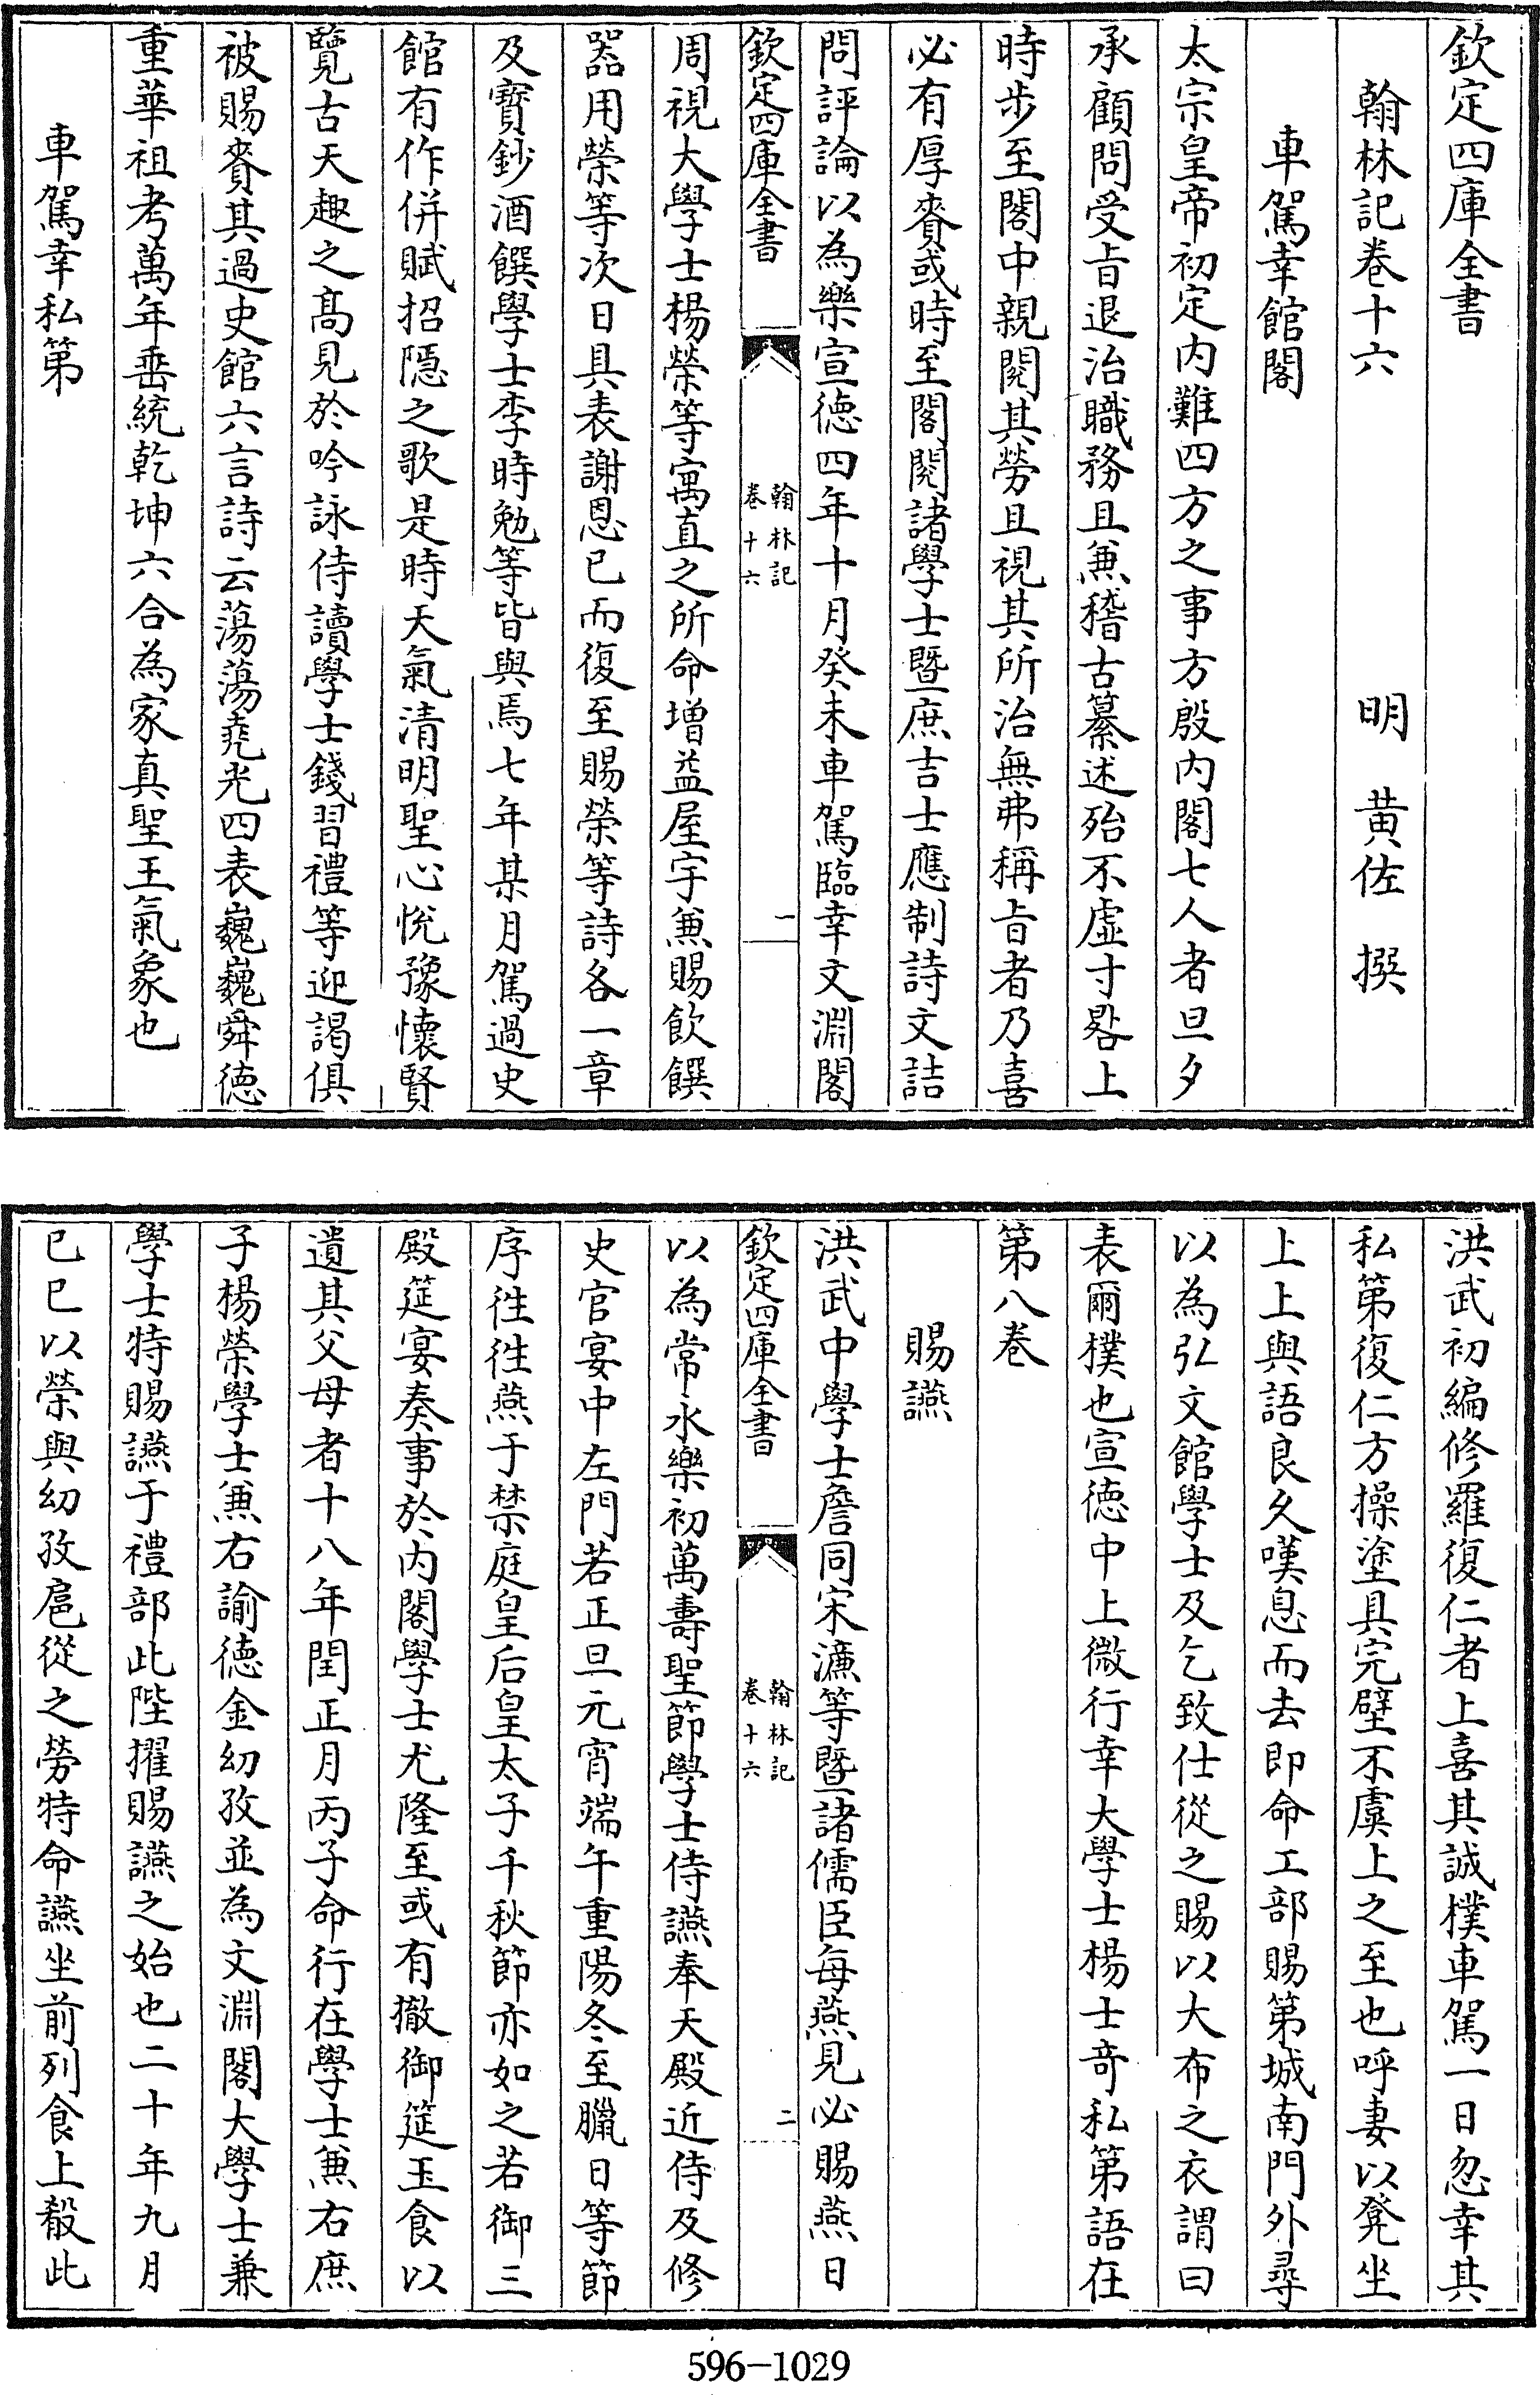 欽定四庫全書
翰林記卷十六
明 黄佐 撰
車駕幸館閣
太宗皇帝初定内難四方之事方殷内閣七人者旦夕
承顧問受旨退治職務且兼稽古纂述殆不虚寸晷上
時步至閣中親閱其勞且視其所治無弗稱旨者乃喜
必有厚賚或時至閣閱諸學士暨庶吉士應制詩文詰
問評論以為樂宣徳四年十月癸未車駕臨幸文淵閣
欽定四庫全書
翰林記
卷十六
一
周視大學士楊榮等寓直之所命增益屋宇兼賜飲饌
器用榮等次日具表謝恩已而復至賜榮等詩各一章
及寶鈔酒饌學士李時勉等皆與焉七年某月駕過史
館有作併賦招隠之歌是時天氣清明聖心悅豫懷賢
覽古天趣之髙見於吟詠侍讀學士錢習禮等迎謁俱
被賜賚其過史館六言詩云蕩蕩堯光四表巍巍舜徳
重華祖考萬年垂統乾坤六合為家真聖王氣象也
車駕幸私第
洪武初編修羅復仁者上喜其誠樸車駕一日忽幸其
私第復仁方操塗具完壁不虞上之至也呼妻以凳坐
上上與語良久嘆息而去即命工部賜第城南門外尋
以為弘文館學士及乞致仕從之賜以大布之衣謂曰
表爾樸也宣徳中上微行幸大學士楊士竒私第語在
第八卷
賜讌
洪武中學士詹同宋濂等暨諸儒臣每燕見必賜燕日
欽定四庫全書
翰林記
卷十六
二
以為常永樂初萬壽聖節學士侍讌奉天殿近侍及修
史官宴中左門若正旦元宵端午重陽冬至臘日等節
序徃徃燕于禁庭皇后皇太子千秋節亦如之若御三
殿筵宴奏事於内閣學士尤隆至或有撤御筵玉食以
遺其父母者十八年閏正月丙子命行在學士兼右庶
子楊榮學士兼右諭徳金幼孜並為文淵閣大學士兼
學士特賜讌于禮部此陛擢賜讌之始也二十年九月
已巳以榮與幼孜扈從之勞特命讌坐前列食上殽此
596-1029